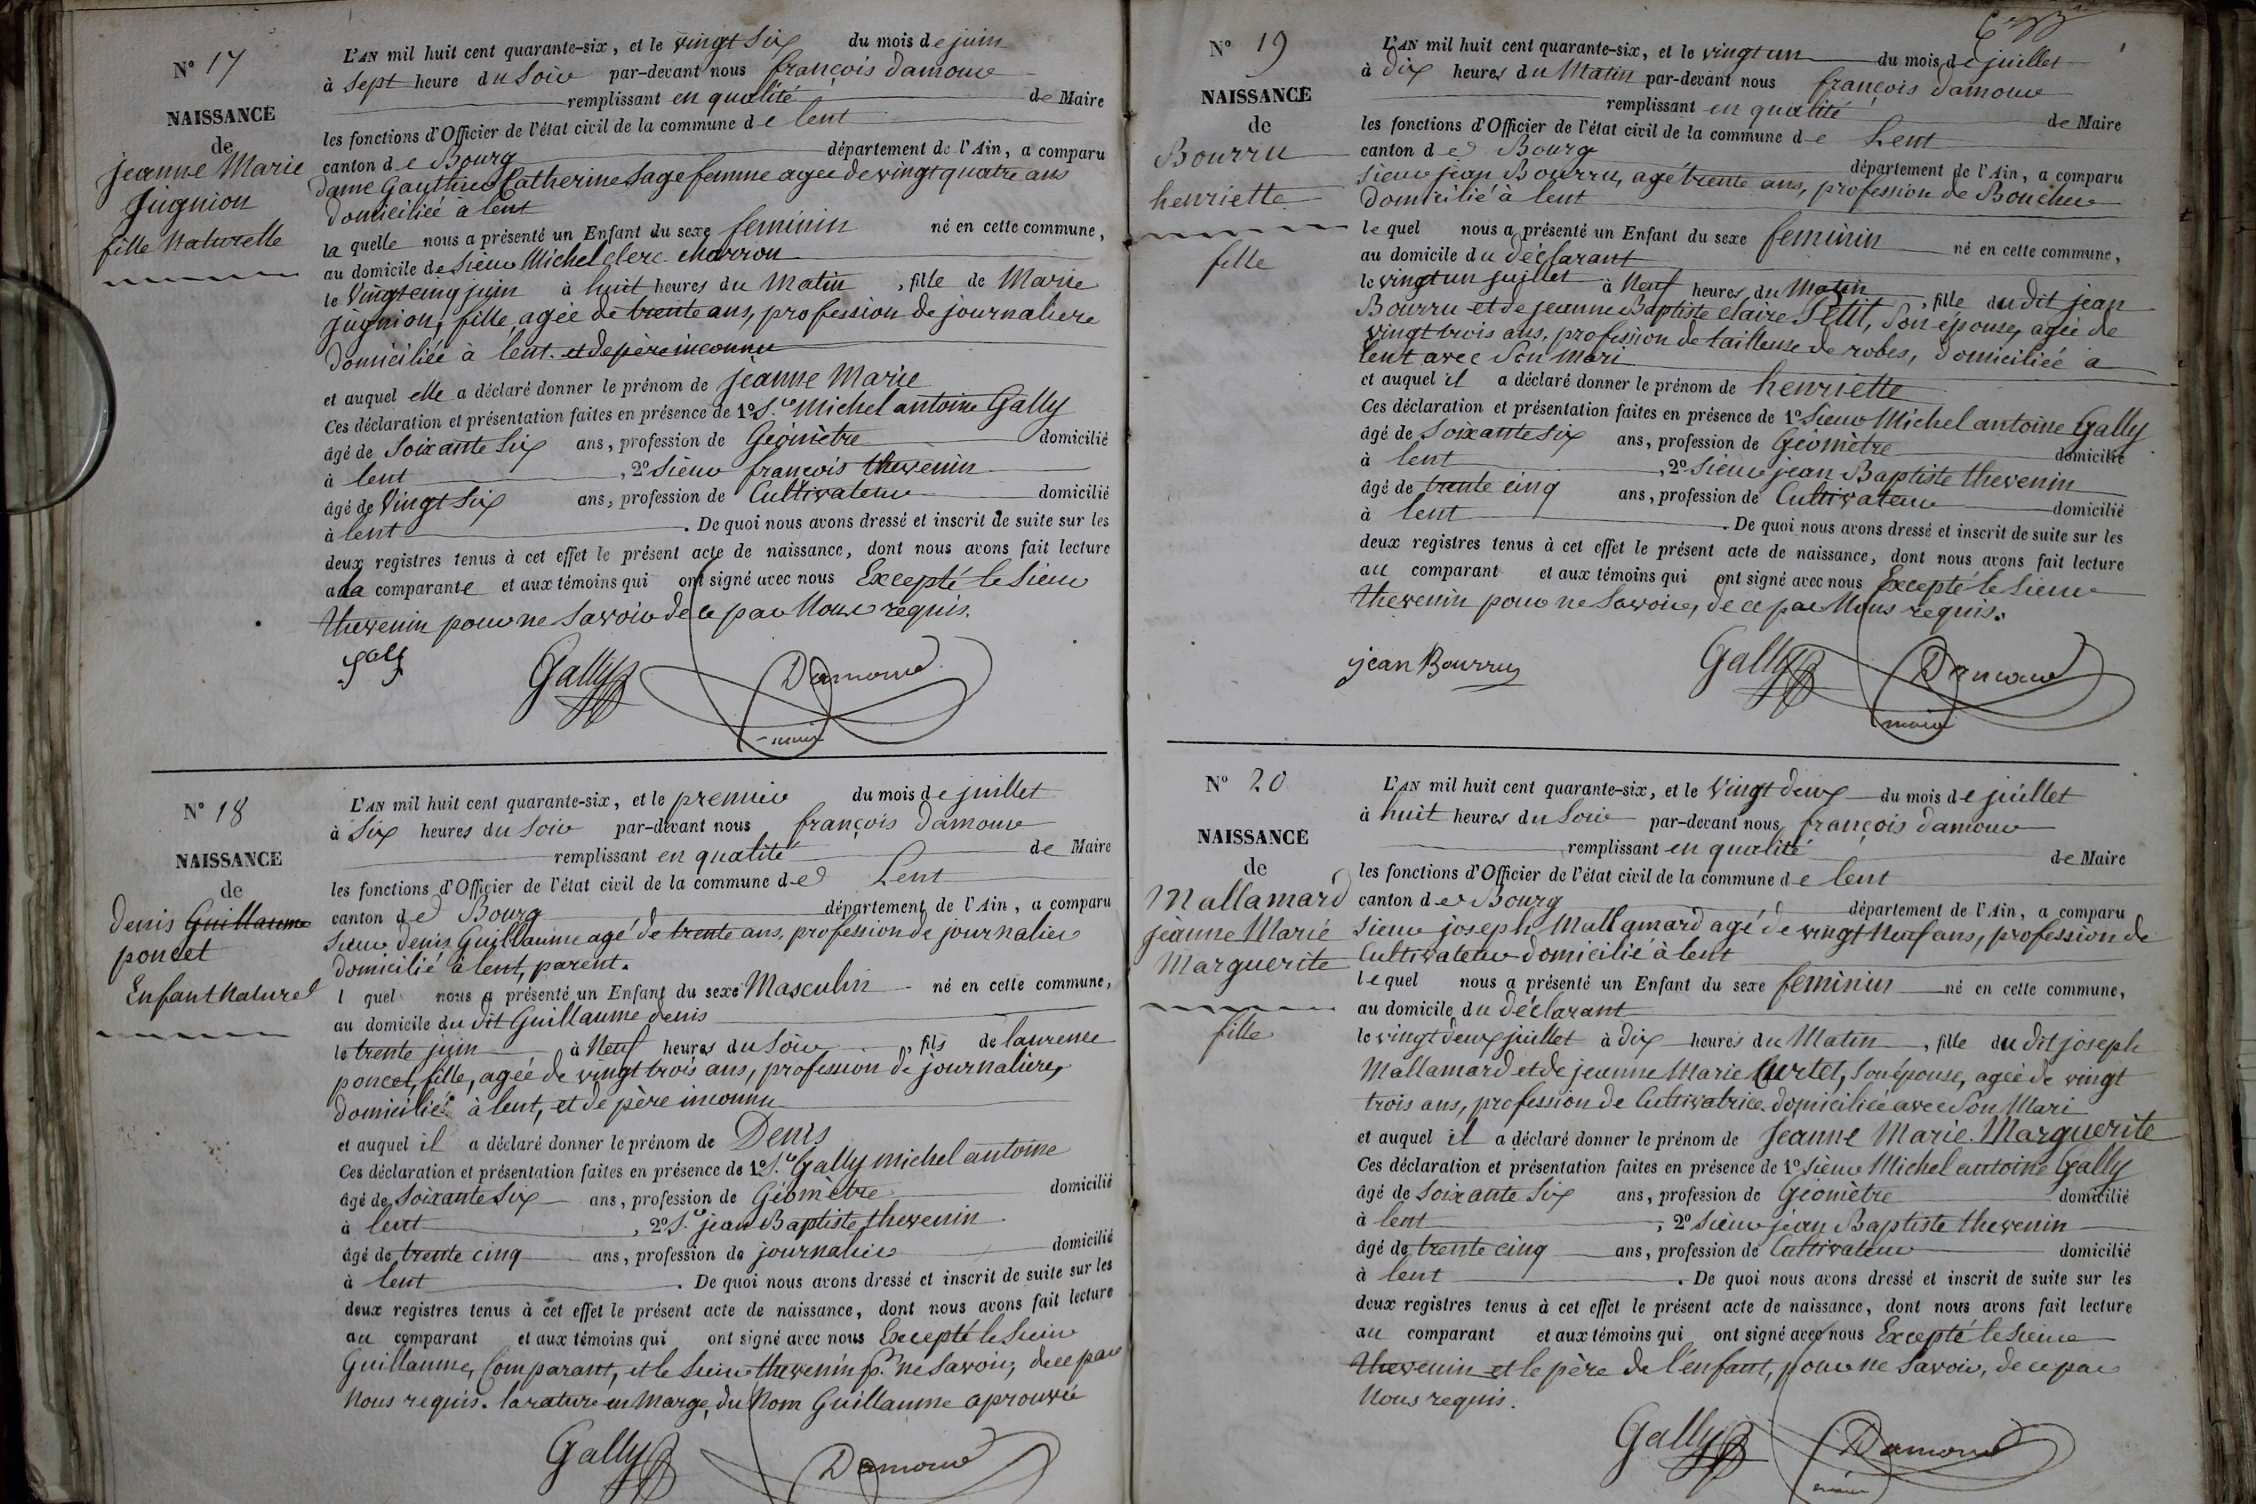 N° 17
NAISSANCE
de
jeanne Marie
Jugnion
fille Naturelle
L'AN mil huit cent quarante-six, et le vingt six du mois de juin
à sept heure du soir par-devant nous françois damour
remplissant en qualité de Maire
les fonctions d'Officier de l'état civil de la commune de lent
canton de Bourg département de l'Ain, a comparu
dame Gauthier Catherine sage femme agee de vingt quatre ans
domiciliée à lent
la quelle nous a présenté un Enfant du sexe feminin né en cette commune,
au domicile de sieur Michel clerc charron
le vingt cinq juin à huit heures du Matin, fille de Marie
jugnion, fille, agée de trente ans, profession de journaliere
domiciliée à lent. et de père inconnu
et auquel elle a déclaré donner le prénom de jeanne Marie
Ces déclaration et présentation faites en présence de 1° S.r Michel antoine Gally
âgé de soixante six ans, profession de Géomètre domicilié
à lent, 2° sieur françois thevenin
âgé de vingt six ans, profession de Cultivateur domicilié
à lent. De quoi nous avons dressé et inscrit de suite sur les
deux registres tenus à cet effet le présent acte de naissance, dont nous avons fait lecture
a la comparante et aux témoins qui ont signé avec nous Excepté le sieur
thevenin pour ne savoir de ce par Nous requis.
Gally Damour
maire
N° 18
NAISSANCE
de
Denis Guillaume
poncet
Enfant Naturel
L'AN mil huit cent quarante-six, et le premier du mois de juillet
à six heures du soir par-devant nous françois damour
remplissant en qualité de Maire
les fonctions d'Officier de l'état civil de la commune de Lent
canton de Bourg département de l'Ain, a comparu
sieur denis Guillaume agé de trente ans, profession de journalier
domicilié à lent, parent.
l quel nous a présenté un Enfant du sexe Masculin né en cette commune,
au domicile du dit Guillaume denis
le trente juin à Neuf heures du soir, fils de laurence
poncet, fille, agée de vingt trois ans, profession de journalière,
domiciliée à lent, et de père inconnu
et auquel il a déclaré donner le prénom de Denis
Ces déclaration et présentation faites en présence de 1° S.r Gally michel antoine
âgé de soixante six ans, profession de Géomètre domicilié
à lent, 2° S.r jean Baptiste thevenin
âgé de trente cinq ans, profession de journalier domicilié
à lent. De quoi nous avons dressé et inscrit de suite sur les
deux registres tenus à cet effet le présent acte de naissance, dont nous avons fait lecture
au comparant et aux témoins qui ont signé avec nous Excepté le sieur
Guillaume, Comparant, et le sieur thevenin pr. ne savoir, de ce par
Nous requis. la rature en Marge, du Nom Guillaume aprouvée
Gally Damour
N° 19
NAISSANCE
de
Bourru
henriette
fille
L'AN mil huit cent quarante-six, et le vingt un du mois de juillet
à dix heures du Matin par-devant nous françois damour
remplissant en qualité de Maire
les fonctions d'Officier de l'état civil de la commune de Lent
canton de Bourg département de l'Ain, a comparu
sieur jean Bourru, agé trente ans, profession de Boucher
domicilié à lent
le quel nous a présenté un Enfant du sexe feminin né en cette commune,
au domicile du déclarant
le vingt un juillet à Neuf heures du Matin, fille du dit jean
Bourru et de jeanne Baptiste claire Petit, son épouse, agée de
vingt trois ans, profession de tailleuse de robes, domiciliée a
lent avec son mari
et auquel il a déclaré donner le prénom de henriette
Ces déclaration et présentation faites en présence de 1° sieur Michel antoine Gally
âgé de soixante six ans, profession de Géomètre domicilié
à lent, 2° sieur jean Baptiste thevenin
âgé de trente cinq ans, profession de Cultivateur domicilié
à lent. De quoi nous avons dressé et inscrit de suite sur les
deux registres tenus à cet effet le présent acte de naissance, dont nous avons fait lecture
au comparant et aux témoins qui ont signé avec nous Excepté le sieur
thevenin pour ne savoir, de ce par Nous requis.
jean Bourru Gally Damour
maire
N° 20
NAISSANCE
de
Mallamard
jeanne Marie
Marguerite
fille
L'AN mil huit cent quarante-six, et le vingt deux du mois de juillet
à huit heures du soir par-devant nous françois damour
remplissant en qualité de Maire
les fonctions d'Officier de l'état civil de la commune de lent
canton de Bourg département de l'Ain, a comparu
sieur joseph Mallamard agé de vingt Neuf ans, profession de
Cultivateur domicilié à lent
le quel nous a présenté un Enfant du sexe feminin né en cette commune,
au domicile du déclarant
le vingt deux juillet à dix heures du Matin, fille du dit joseph
Mallamard et de jeanne Marie Curtet, son épouse, agée de vingt
trois ans, profession de Cultivatrice domiciliée avec son Mari
et auquel il a déclaré donner le prénom de Jeanne Marie Marguerite
Ces déclaration et présentation faites en présence de 1° sieur Michel antoine Gally
âgé de soixante six ans, profession de Géomètre domicilié
à lent, 2° sieur jean Baptiste thevenin
âgé de trente cinq ans, profession de Cultivateur domicilié
à lent. De quoi nous avons dressé et inscrit de suite sur les
deux registres tenus à cet effet le présent acte de naissance, dont nous avons fait lecture
au comparant et aux témoins qui ont signé avec nous Excepté le sieur
thevenin et le père de l'enfant, pour ne savoir, de ce par
Nous requis.
Gally Damour
maire